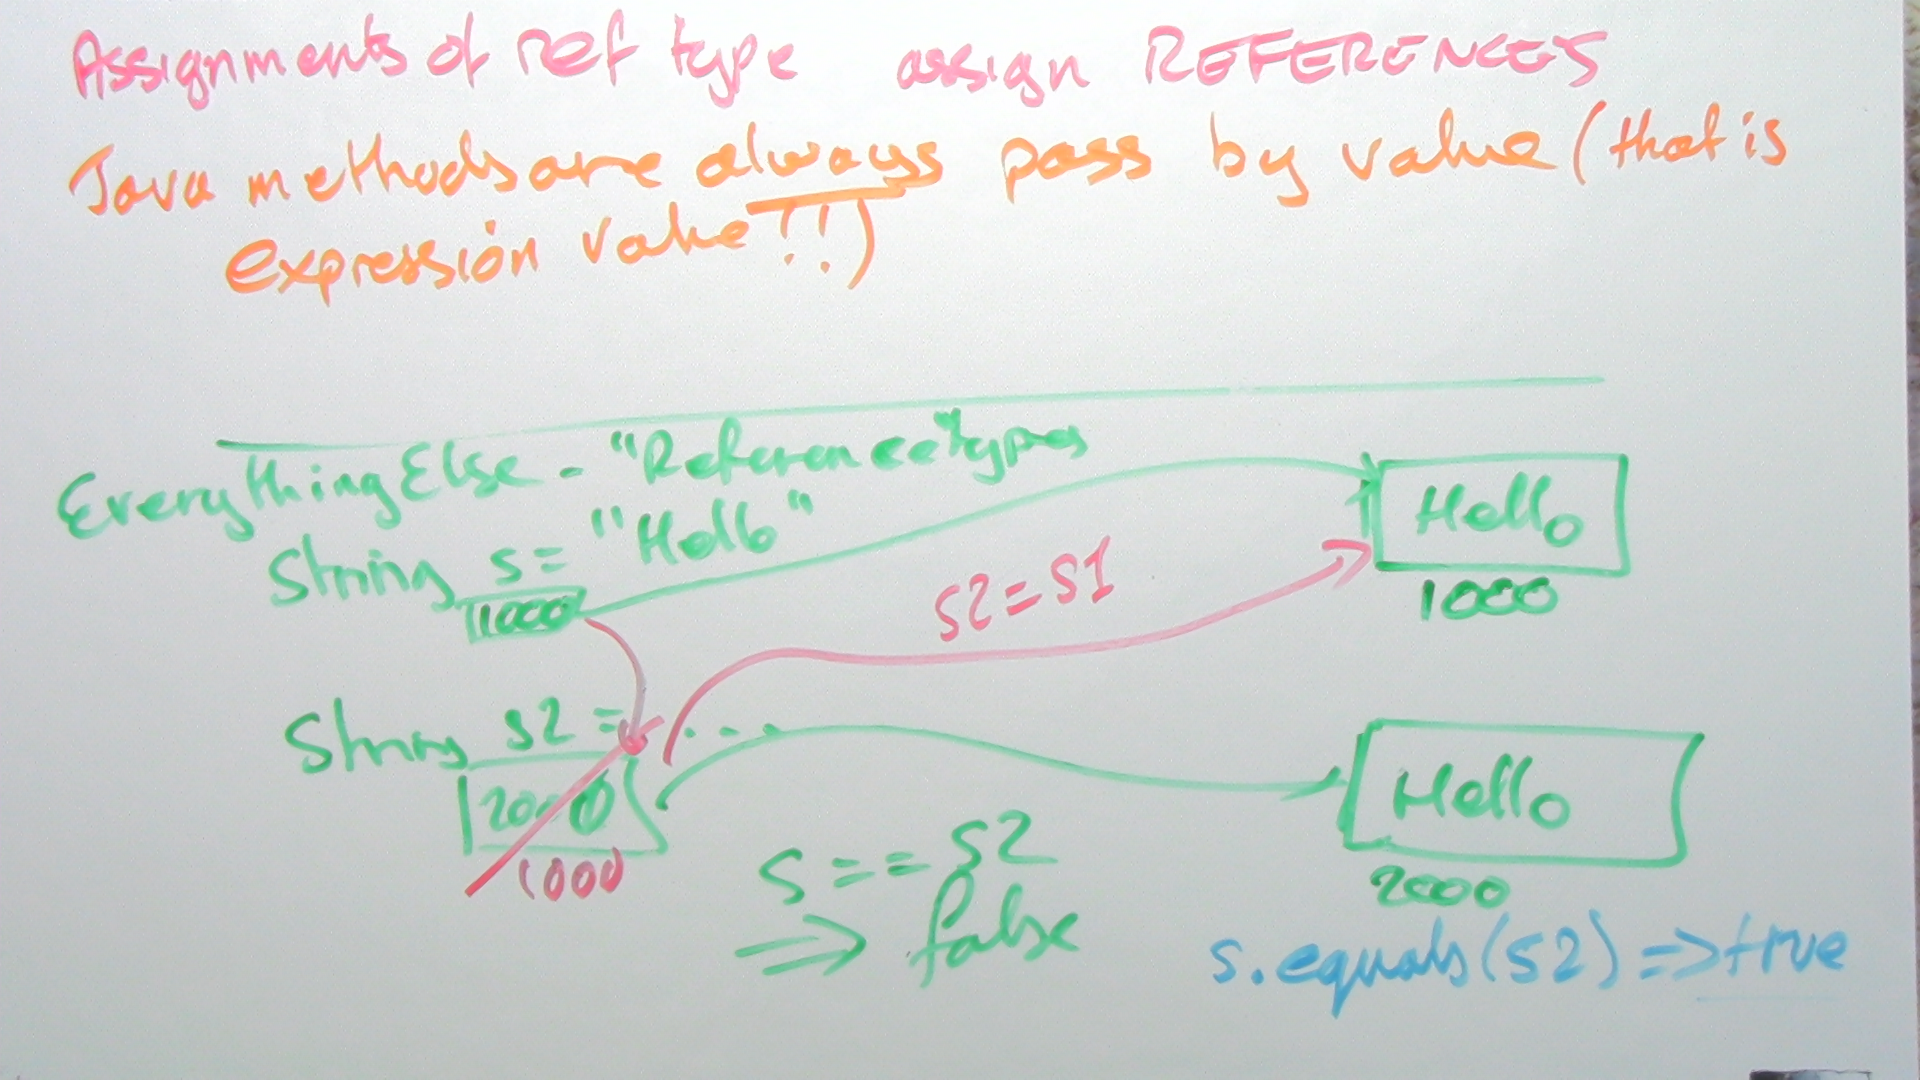 Assignments of ref type assign REFERENCES
Java methods are always pass by value (that is
expression value!!)
Everything Else - "Reference" types
String s = "Hello"
1000
Hello
1000
s2 = s1
String s2 = ....
2000
1000
Hello
2000
s == s2
=> false
s.equals(s2) => true